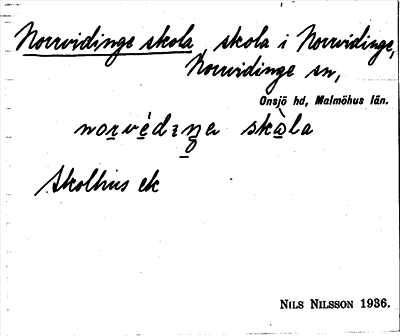 Norrvidinge skola, skola i Norrvidinge,
Norrvidinge sn,
Onsjö hd, Malmöhus län.
skòla
Skolhus ek
NILS NILSSON 1936.